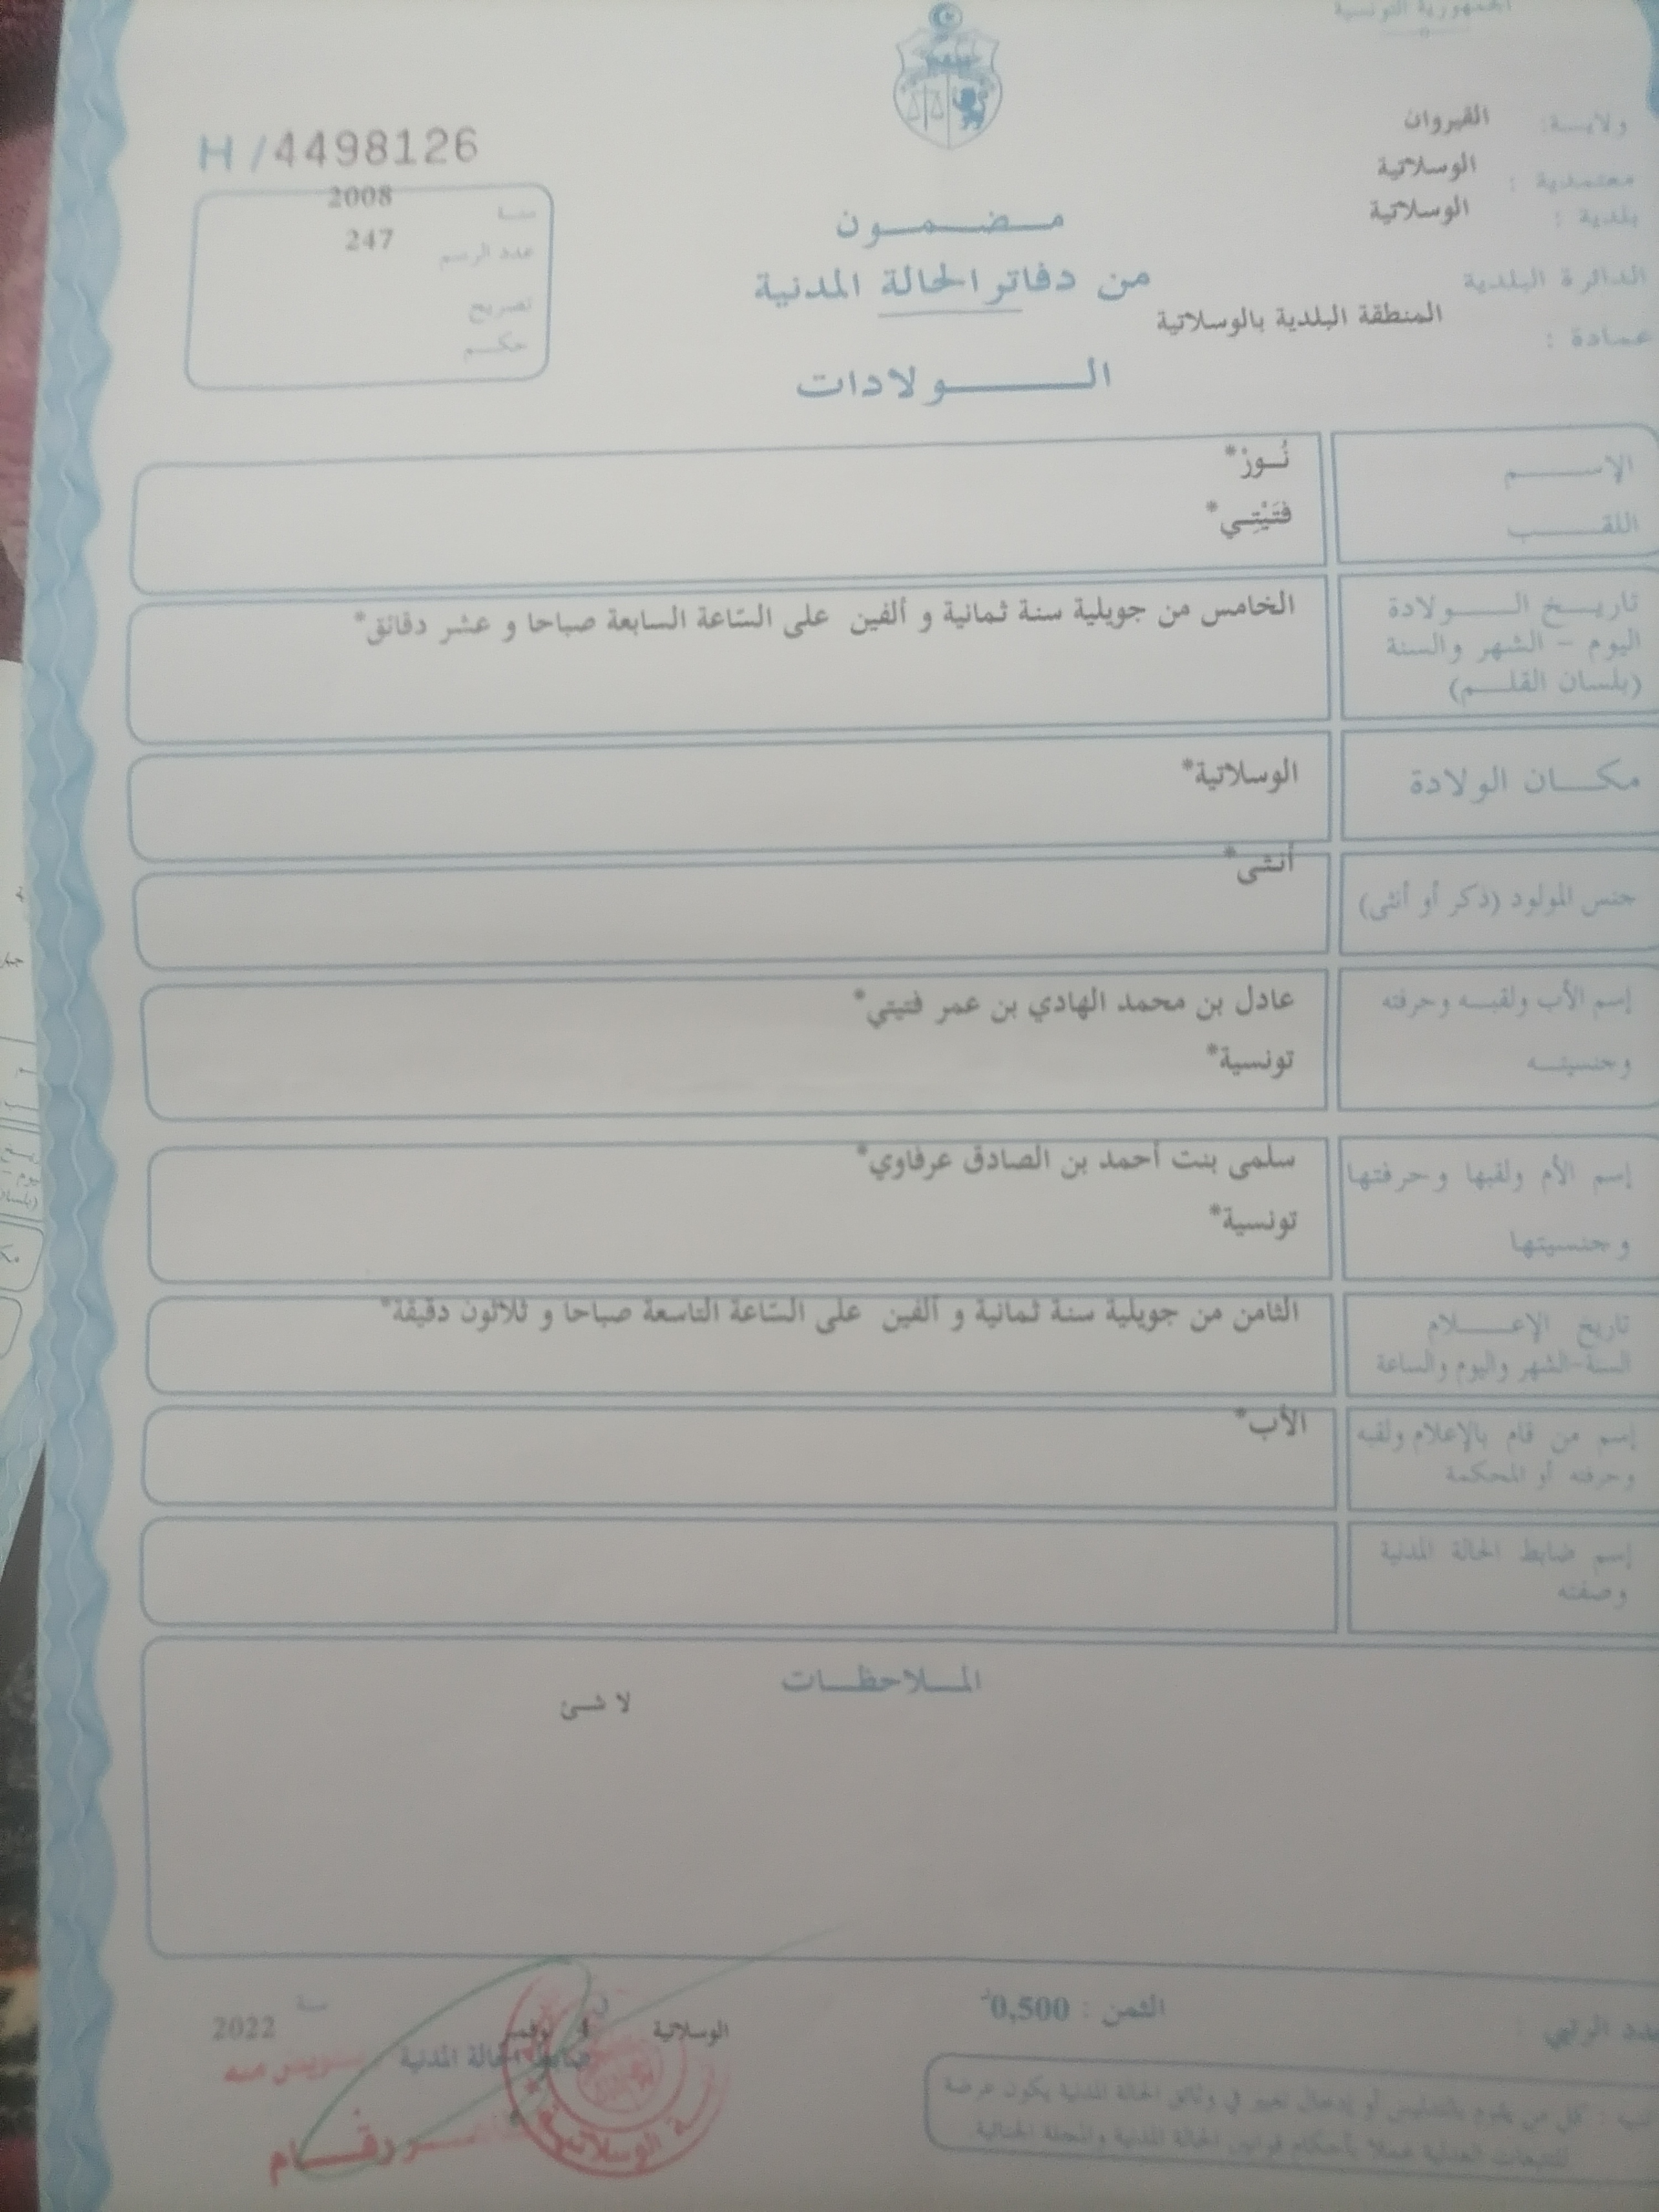 الجمهورية التونسية
ولايـــة: القيروان
معتمدية : الوسلاتية
بلدية : الوسلاتية
الدائرة البلدية
المنطقة البلدية بالوسلاتية
عمادة :
H/4498126
سنة 2008
عدد الرسم 247
تصريح
حكم
مضمون
من دفاتر الحالة المدنية
الولادات
الإسم نُوز*
اللقب فتَيْتِي*
تاريخ الولادة الخامس من جويلية سنة ثمانية و ألفين على السّاعة السابعة صباحا و عشر دقائق*
اليوم - الشهر والسنة
(بلسان القلم)
مكان الولادة الوسلاتية*
جنس المولود (ذكر أو أنثى) أنثى*
إسم الأب ولقبه وحرفته عادل بن محمد الهادي بن عمر فتيتي*
وجنسيته تونسية*
إسم الأم ولقبها وحرفتها سلمى بنت أحمد بن الصادق عرفاوي*
وجنسيتها تونسية*
تاريخ الإعلام الثامن من جويلية سنة ثمانية و ألفين على السّاعة التاسعة صباحا و ثلاثون دقيقة*
السنة-الشهر واليوم والساعة
إسم من قام بالإعلام ولقبه الأب*
وحرفته أو المحكمة
إسم ضابط الحالة المدنية
وصفته
الملاحظات
لا شئ
الثمن : 0,500د
الوسلاتية 4 نوفمبر سنة 2022
ضابط الحالة المدنية
الوسلاتية
تنبيه : كل من يقوم بالتدليس أو إدخال تغيير في وثائق الحالة المدنية يكون عرضة
للتتبعات العدلية عملا بأحكام قوانين الحالة المدنية والمجلة الجنائية